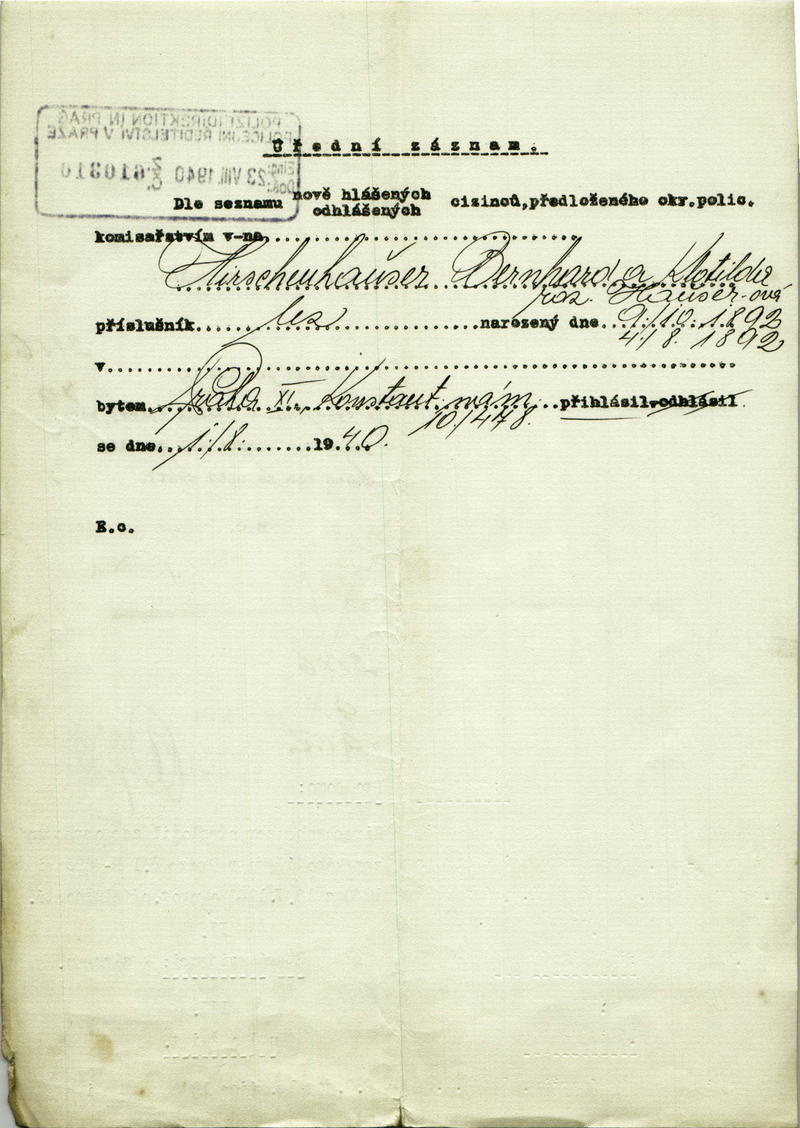 POLIZEIDIREKTION IN PRAG
POLICEJNÍ ŘEDITELSTVÍ V PRAZE
23 VIII. 1940
610310
Úřední záznam.
Dle seznamu nově hlášených
odhlášených cizinců, předloženého okr. polic.
komisařstvím v-na
Hirschenhauser Bernhard a Klotilda
roz. Hauser-ová
příslušník bez narozený dne 9/10. 1892
4/8. 1892
v
bytem Praha XI, Konstant. nám. přihlásil-odhlásil
10/478.
se dne 1/8. 1940.
E.o.